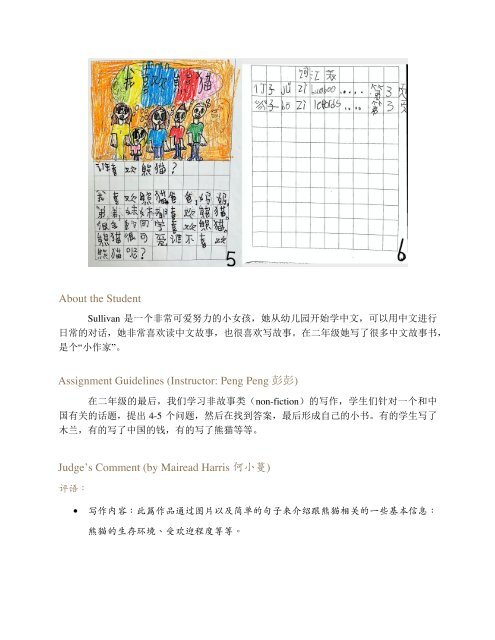 我喜欢熊猫
谁喜欢熊猫?
我喜欢熊猫,爸爸,妈妈,
弟弟,妹妹都喜欢熊猫。
很多的同学喜欢熊猫。
熊猫很可爱谁不喜欢
熊猫呢?
5
词汇表
竹子 zhú zi bamboo ..... 第3页
6
About the Student
Sullivan 是一个非常可爱努力的小女孩,她从幼儿园开始学中文,可以用中文进行
日常的对话,她非常喜欢读中文故事,也很喜欢写故事。在二年级她写了很多中文故事书,
是个“小作家”。
Assignment Guidelines (Instructor: Peng Peng 彭彭)
在二年级的最后,我们学习非故事类(non-fiction)的写作,学生们针对一个和中
国有关的话题,提出 4-5 个问题,然后在找到答案,最后形成自己的小书。有的学生写了
木兰,有的写了中国的钱,有的写了熊猫等等。
Judge’s Comment (by Mairead Harris 何小蔓)
评语:
• 写作内容:此篇作品通过图片以及简单的句子来介绍跟熊猫相关的一些基本信息:
熊猫的生存环境、受欢迎程度等等。